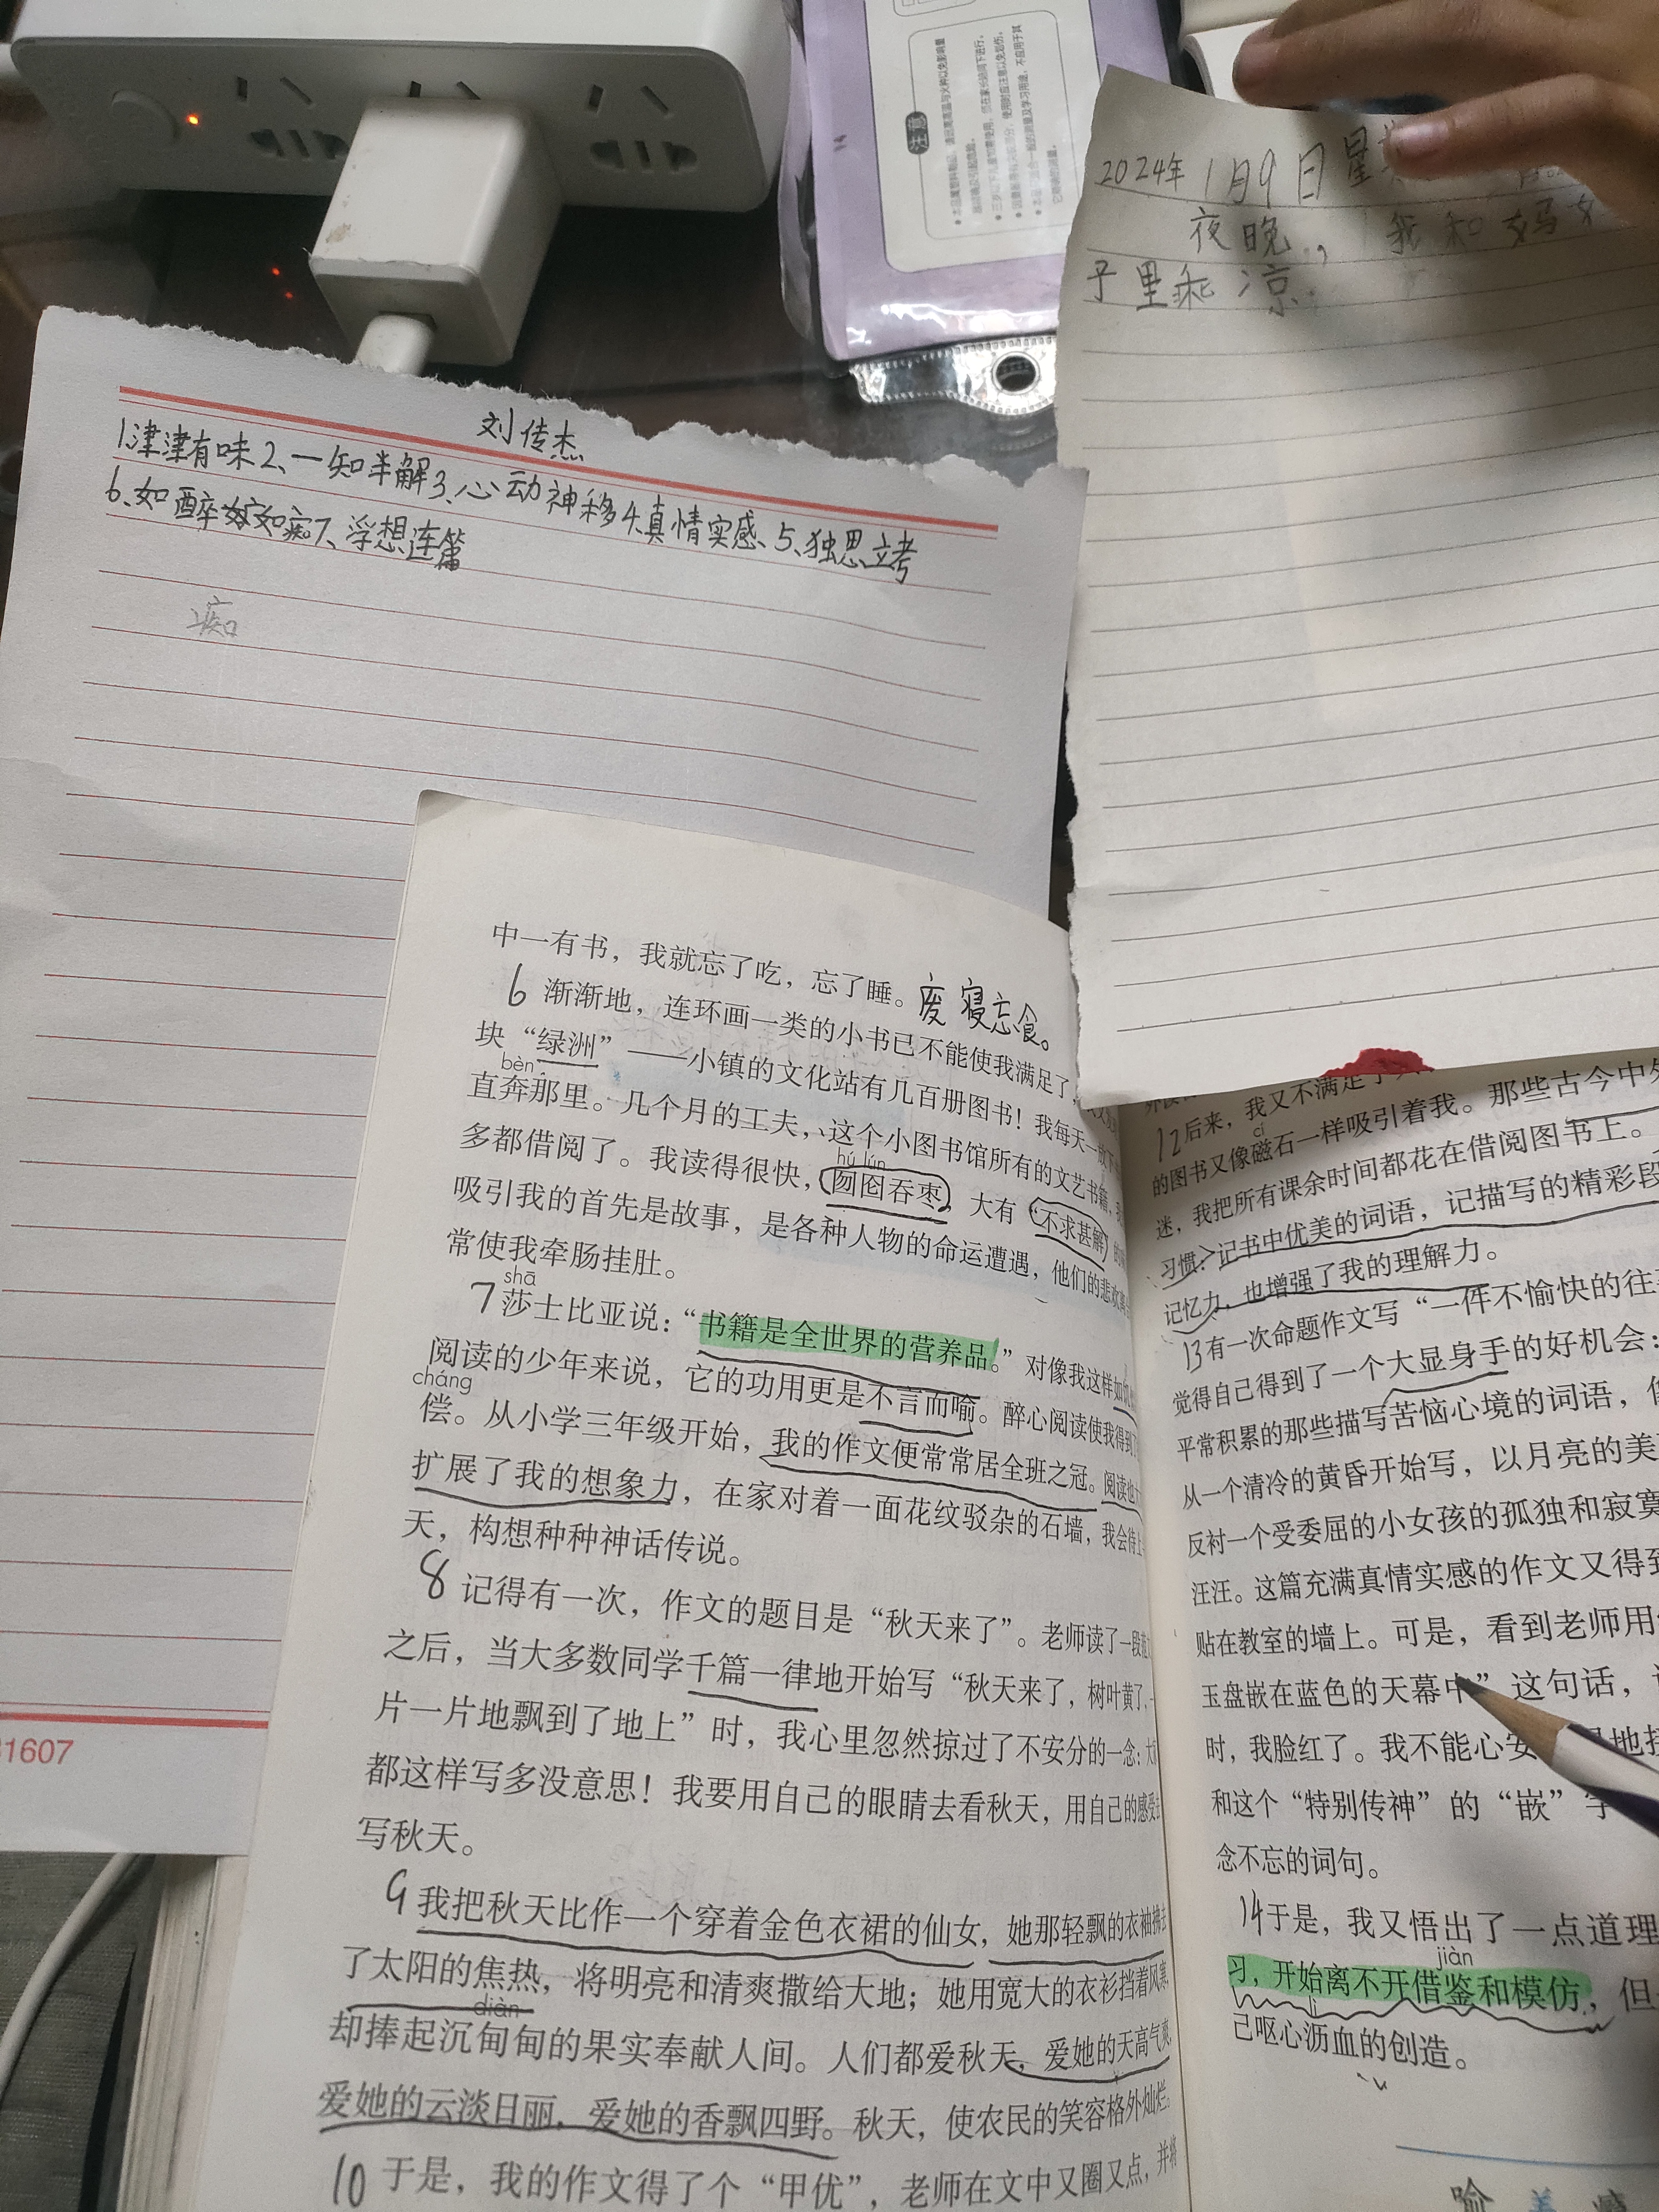 注意
2024年1月9日星
夜晚，我和妈
子里乘凉
刘传杰
1.津津有味2、一知半解3、心动神移4.真情实感、5、独思立考
6、如醉如痴7、浮想连篇
痴
中一有书，我就忘了吃，忘了睡。废寝忘食。
6 渐渐地，连环画一类的小书已不能使我满足了
块“绿洲”——小镇的文化站有几百册图书！我每天一放下
bèn
直奔那里。几个月的工夫，这个小图书馆所有的文艺书籍，
多都借阅了。我读得很快，囫囵吞枣，大有“不求甚解”
hú lún
吸引我的首先是故事，是各种人物的命运遭遇，他们的悲欢离
常使我牵肠挂肚。
shā
7 莎士比亚说：“书籍是全世界的营养品。”对像我这样如饥
阅读的少年来说，它的功用更是不言而喻。醉心阅读使我得到
cháng
偿。从小学三年级开始，我的作文便常常居全班之冠。阅读也
扩展了我的想象力，在家对着一面花纹驳杂的石墙，我会待上
天，构想种种神话传说。
8 记得有一次，作文的题目是“秋天来了”。老师读了一段
之后，当大多数同学千篇一律地开始写“秋天来了，树叶黄了，一
片一片地飘到了地上”时，我心里忽然掠过了不安分的一念：大
都这样写多没意思！我要用自己的眼睛去看秋天，用自己的感受去
写秋天。
9 我把秋天比作一个穿着金色衣裙的仙女，她那轻飘的衣袖拂去
了太阳的焦热，将明亮和清爽撒给大地；她用宽大的衣衫挡着风寒，
diàn
却捧起沉甸甸的果实奉献人间。人们都爱秋天，爱她的天高气爽，
爱她的云淡日丽，爱她的香飘四野。秋天，使农民的笑容格外灿烂。
10 于是，我的作文得了个“甲优”，老师在文中又圈又点，并将
12 后来，我又不满足于
那些古今中外
cí
的图书又像磁石一样吸引着我。
迷，我把所有课余时间都花在借阅图书上。
习惯：记书中优美的词语，记描写的精彩段
记忆力，也增强了我的理解力。
13 有一次命题作文写“一件不愉快的往
觉得自己得到了一个大显身手的好机会：
平常积累的那些描写苦恼心境的词语，
从一个清冷的黄昏开始写，以月亮的美
反衬一个受委屈的小女孩的孤独和寂寞
汪汪。这篇充满真情实感的作文又得到
贴在教室的墙上。可是，看到老师用
玉盘嵌在蓝色的天幕中”这句话，
时，我脸红了。我不能心安
和这个“特别传神”的“嵌”字
念不忘的词句。
14 于是，我又悟出了一点道理
jiàn
习，开始离不开借鉴和模仿，但
lì
己呕心沥血的创造。
31607